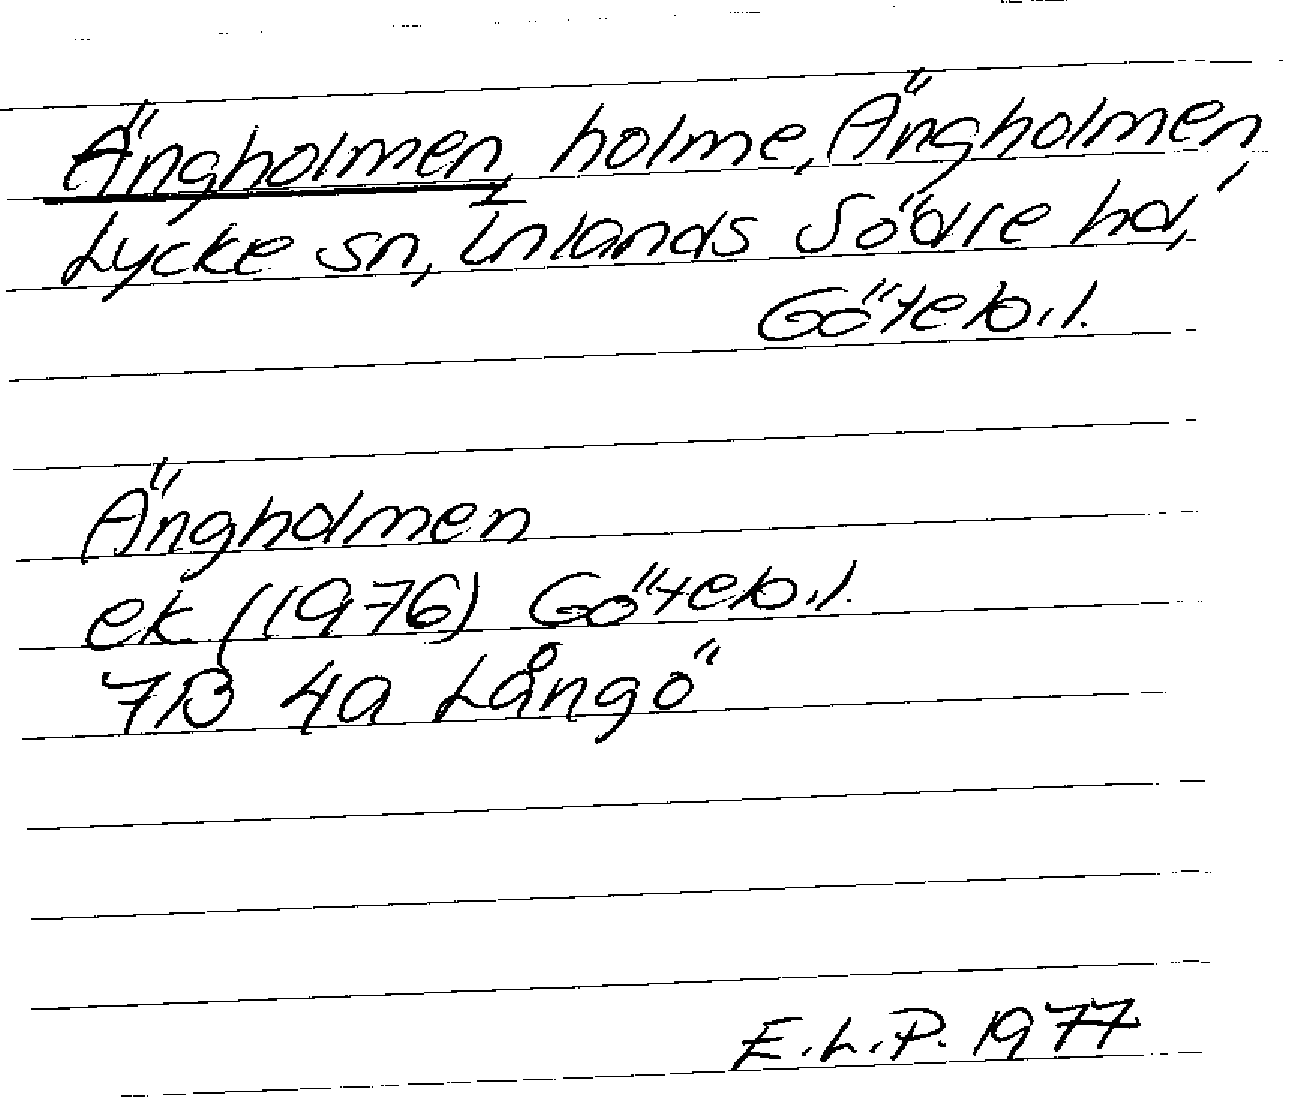 Ängholmen, holme, Ängholmen,
Lycke sn, Inlands Södre hd,
Göteb.l.
Ängholmen
ek (1976) Göteb.l.
7B 4a Långö
E.L.P. 1977